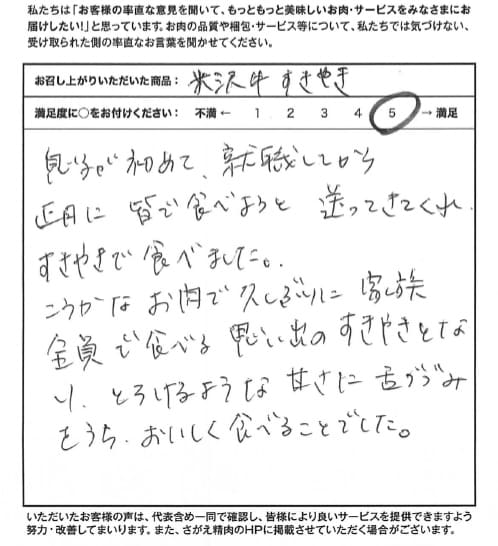 私たちは「お客様の率直な意見を聞いて、もっともっと美味しいお肉・サービスをみなさまにお
届けしたい!」と思っています。お肉の品質や梱包・サービス等について、私たちでは気づけない、
受け取られた側の率直なお言葉を聞かせてください。
お召し上がりいただいた商品： 米沢牛 すきやき
満足度に○をお付けください： 不満 ← 1 2 3 4 5 → 満足
息子が初めて、就職してから
正月に 皆で食べようと 送ってきてくれ
すきやきで食べました。
こうかなお肉で久しぶりに 家族
全員で食べる 思い出のすきやきとな
り、とろけるような甘さに舌がづみ
をうち、おいしく食べることでした。
いただいたお客様の声は、代表含め一同で確認し、皆様により良いサービスを提供できますよう
努力・改善してまいります。また、さがえ精肉のHPに掲載させていただく場合がございます。